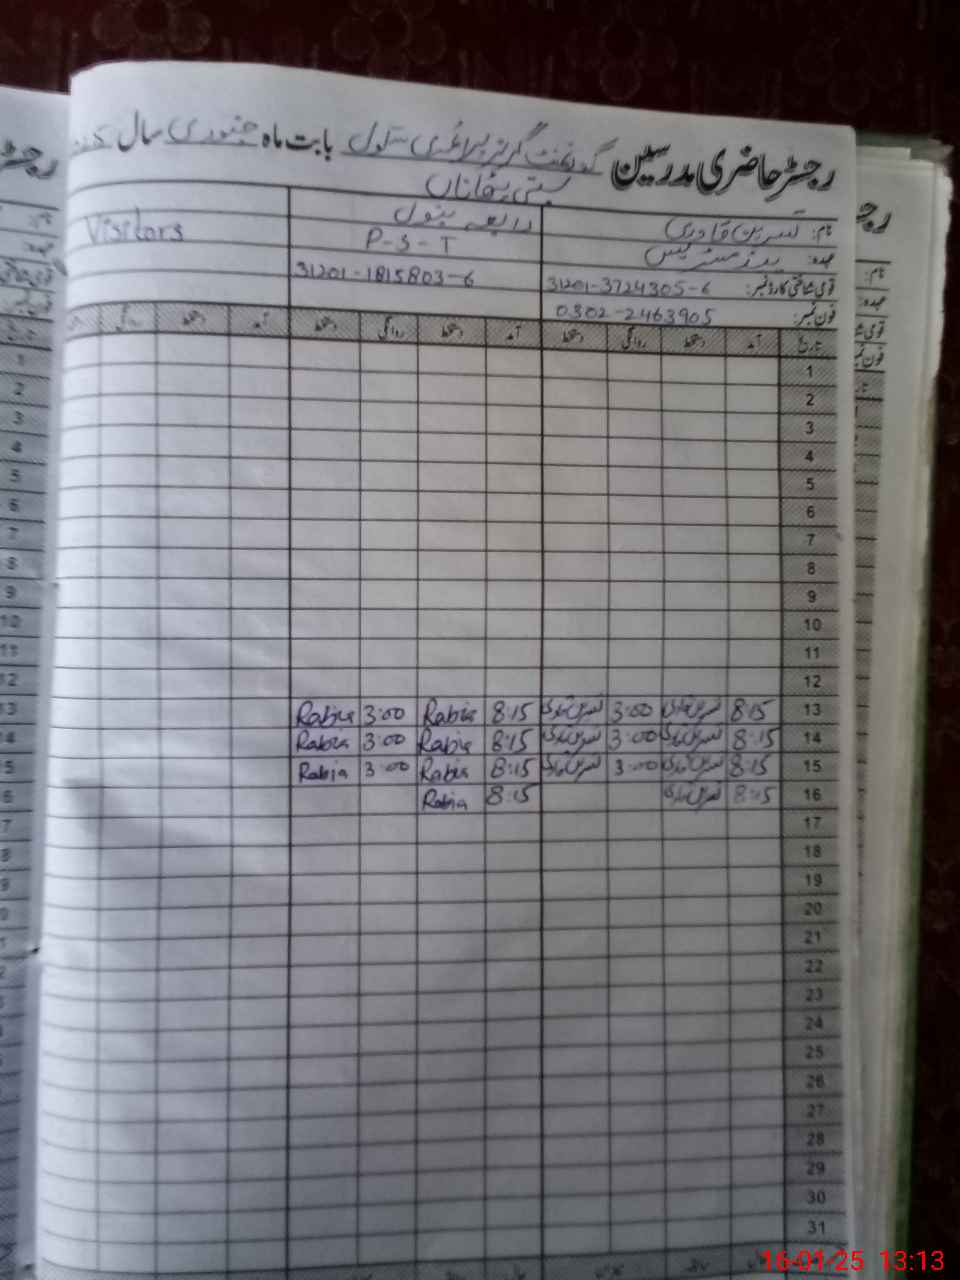 رجسٹر حاضری مدرسین گورنمنٹ گرلز پرائمری سکول بابت ماہ جنوری سال
بستی پٹھاناں
نام: نسرین قادری
عہدہ: ہیڈ مسٹریس
قومی شناختی کارڈ نمبر: 31201-3724305-6
فون نمبر: 0302-2463905
رابعہ بتول
P-S-T
31201-1815803-6
Visitors
تاریخ آمد دستخط روانگی دستخط آمد دستخط روانگی دستخط آمد دستخط روانگی
1
2
3
4
5
6
7
8
9
10
11
12
13 8:15 نسرین قادری 3:00 نسرین قادری 8:15 Rabia 3:00 Rabia
14 8:15 نسرین قادری 3:00 نسرین قادری 8:15 Rabia 3:00 Rabia
15 8:15 نسرین قادری 3:00 نسرین قادری 8:15 Rabia 3:00 Rabia
16 8:15 نسرین قادری 8:15 Rabia
17
18
19
20
21
22
23
24
25
26
27
28
29
30
31
16-01-25 13:13